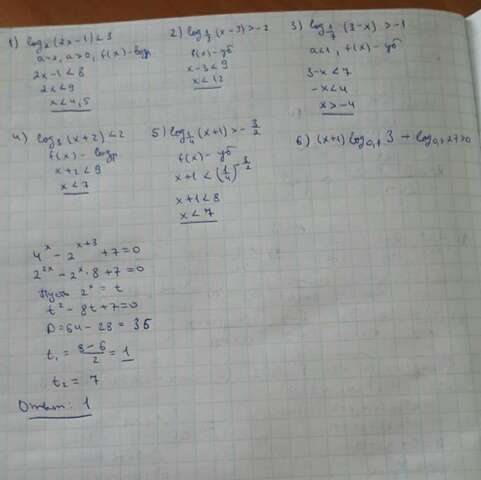 1) log₂(2x-1)<3
a=2, a>0, f(x)-возр
2x-1<8
2x<9
x<4,5
2) log⅓(x-3)>-2
f(x)-уб
x-3<9
x<12
3) log_1/7 (3-x)>-1
a<1, f(x)-уб
3-x<7
-x<4
x>-4
4) log₃(x+2)<2
f(x)- возр
x+2<9
x<7
5) log_1/4 (x+1)>-3/2
f(x)-уб
x+1<(1/4)^-3/2
x+1<8
x<7
6) (x+1)log_0,1 3 - log_0,1 27>0
4^x - 2^x+3 +7=0
2^2x - 2^x·8+7=0
Пусть 2^x = t
t²-8t+7=0
D=64-28=36
t₁= 8-6/2 = 1
t₂ = 7
Ответ: 1